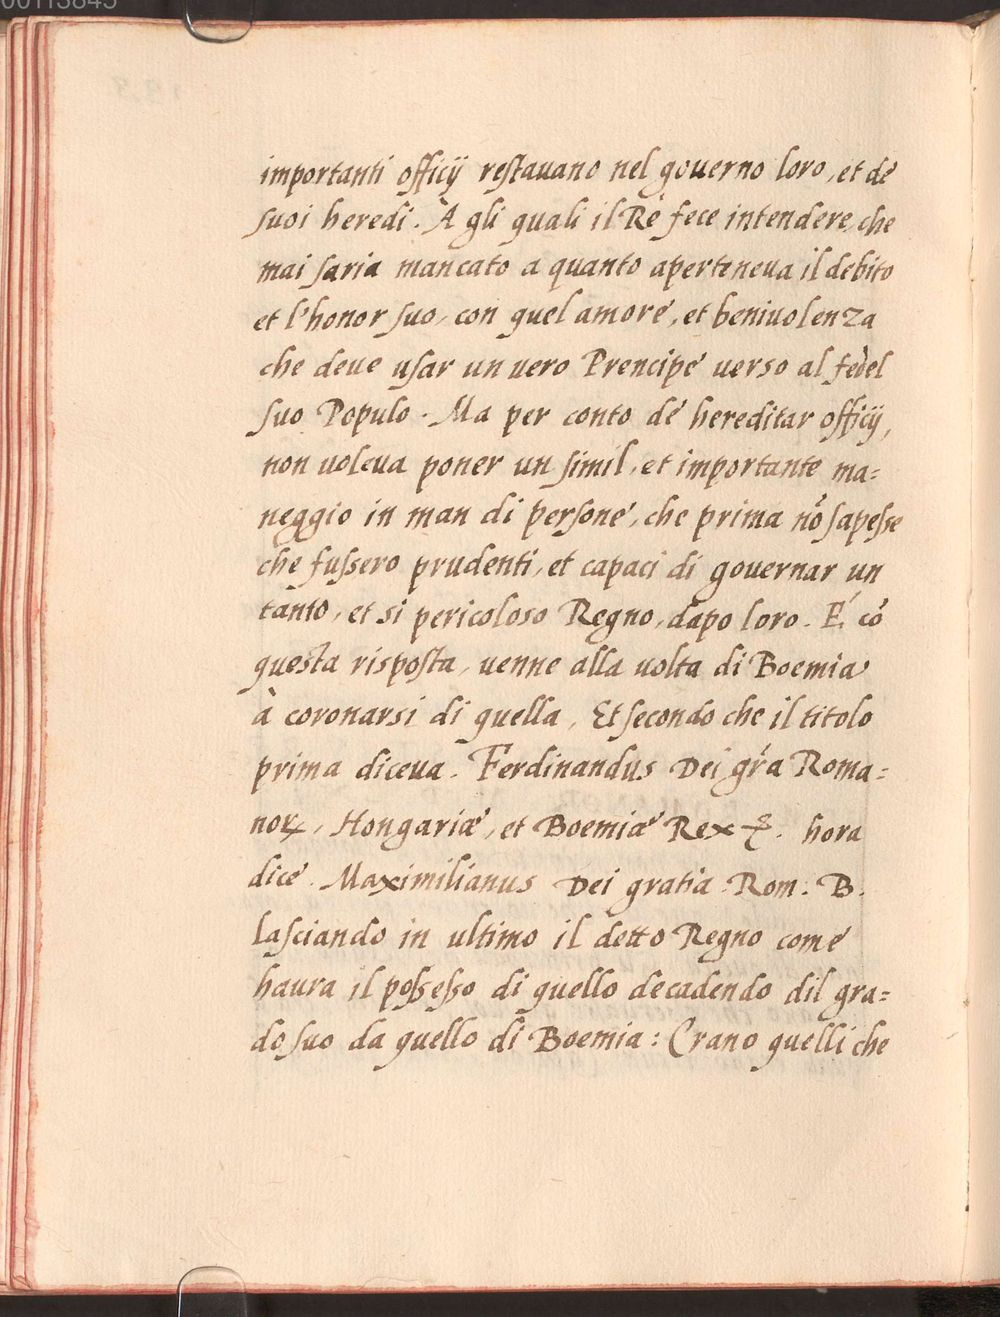 00113845
importanti officÿ restauano nel gouerno loro, et dé
suoi heredi. À gli quali il Rè fece intendere, che
mai saria mancato a quanto aperteneua il debito
et l'honor suo, con quel amoré, et beniuolenza
che deue usar un uero Prencipé uerso al fedel
suo Populo. Ma per conto dé hereditar officÿ,
non uoleua poner un simil, et importante ma=
neggio in man di personé, che prima nõ sapesse
che fussero prudenti, et capaci di gouernar un
tanto, et si pericoloso Regno, dapo loro. É cõ
questa risposta, uenne alla uolta di Boemia
à coronarsi di quella, Et secondo che il titolo
prima diceua. Ferdinandus Dei grã Roma=
noꝝ, Hongariæ, et Boemiæ Rex hora
dicé. Maximilianus Dei gratia Rom. B.
lasciando in ultimo il detto Regno comé
haura il possesso di quello decadendo dil gra=
do suo da quello di Boemia: Erano quelli che